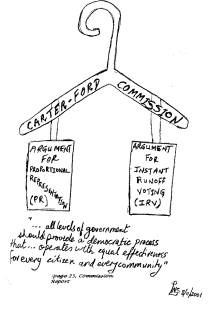 CARTER-FORD COMMISSION
ARGUMENT
FOR
PROPORTIONAL
REPRESENTATION
(PR)
ARGUMENT
FOR
INSTANT
RUNOFF
VOTING
(IRV)
"... all levels of government
should provide a democratic process
that... operates with equal effectiveness
for every citizen and every community"
(page 25, Commission
Report